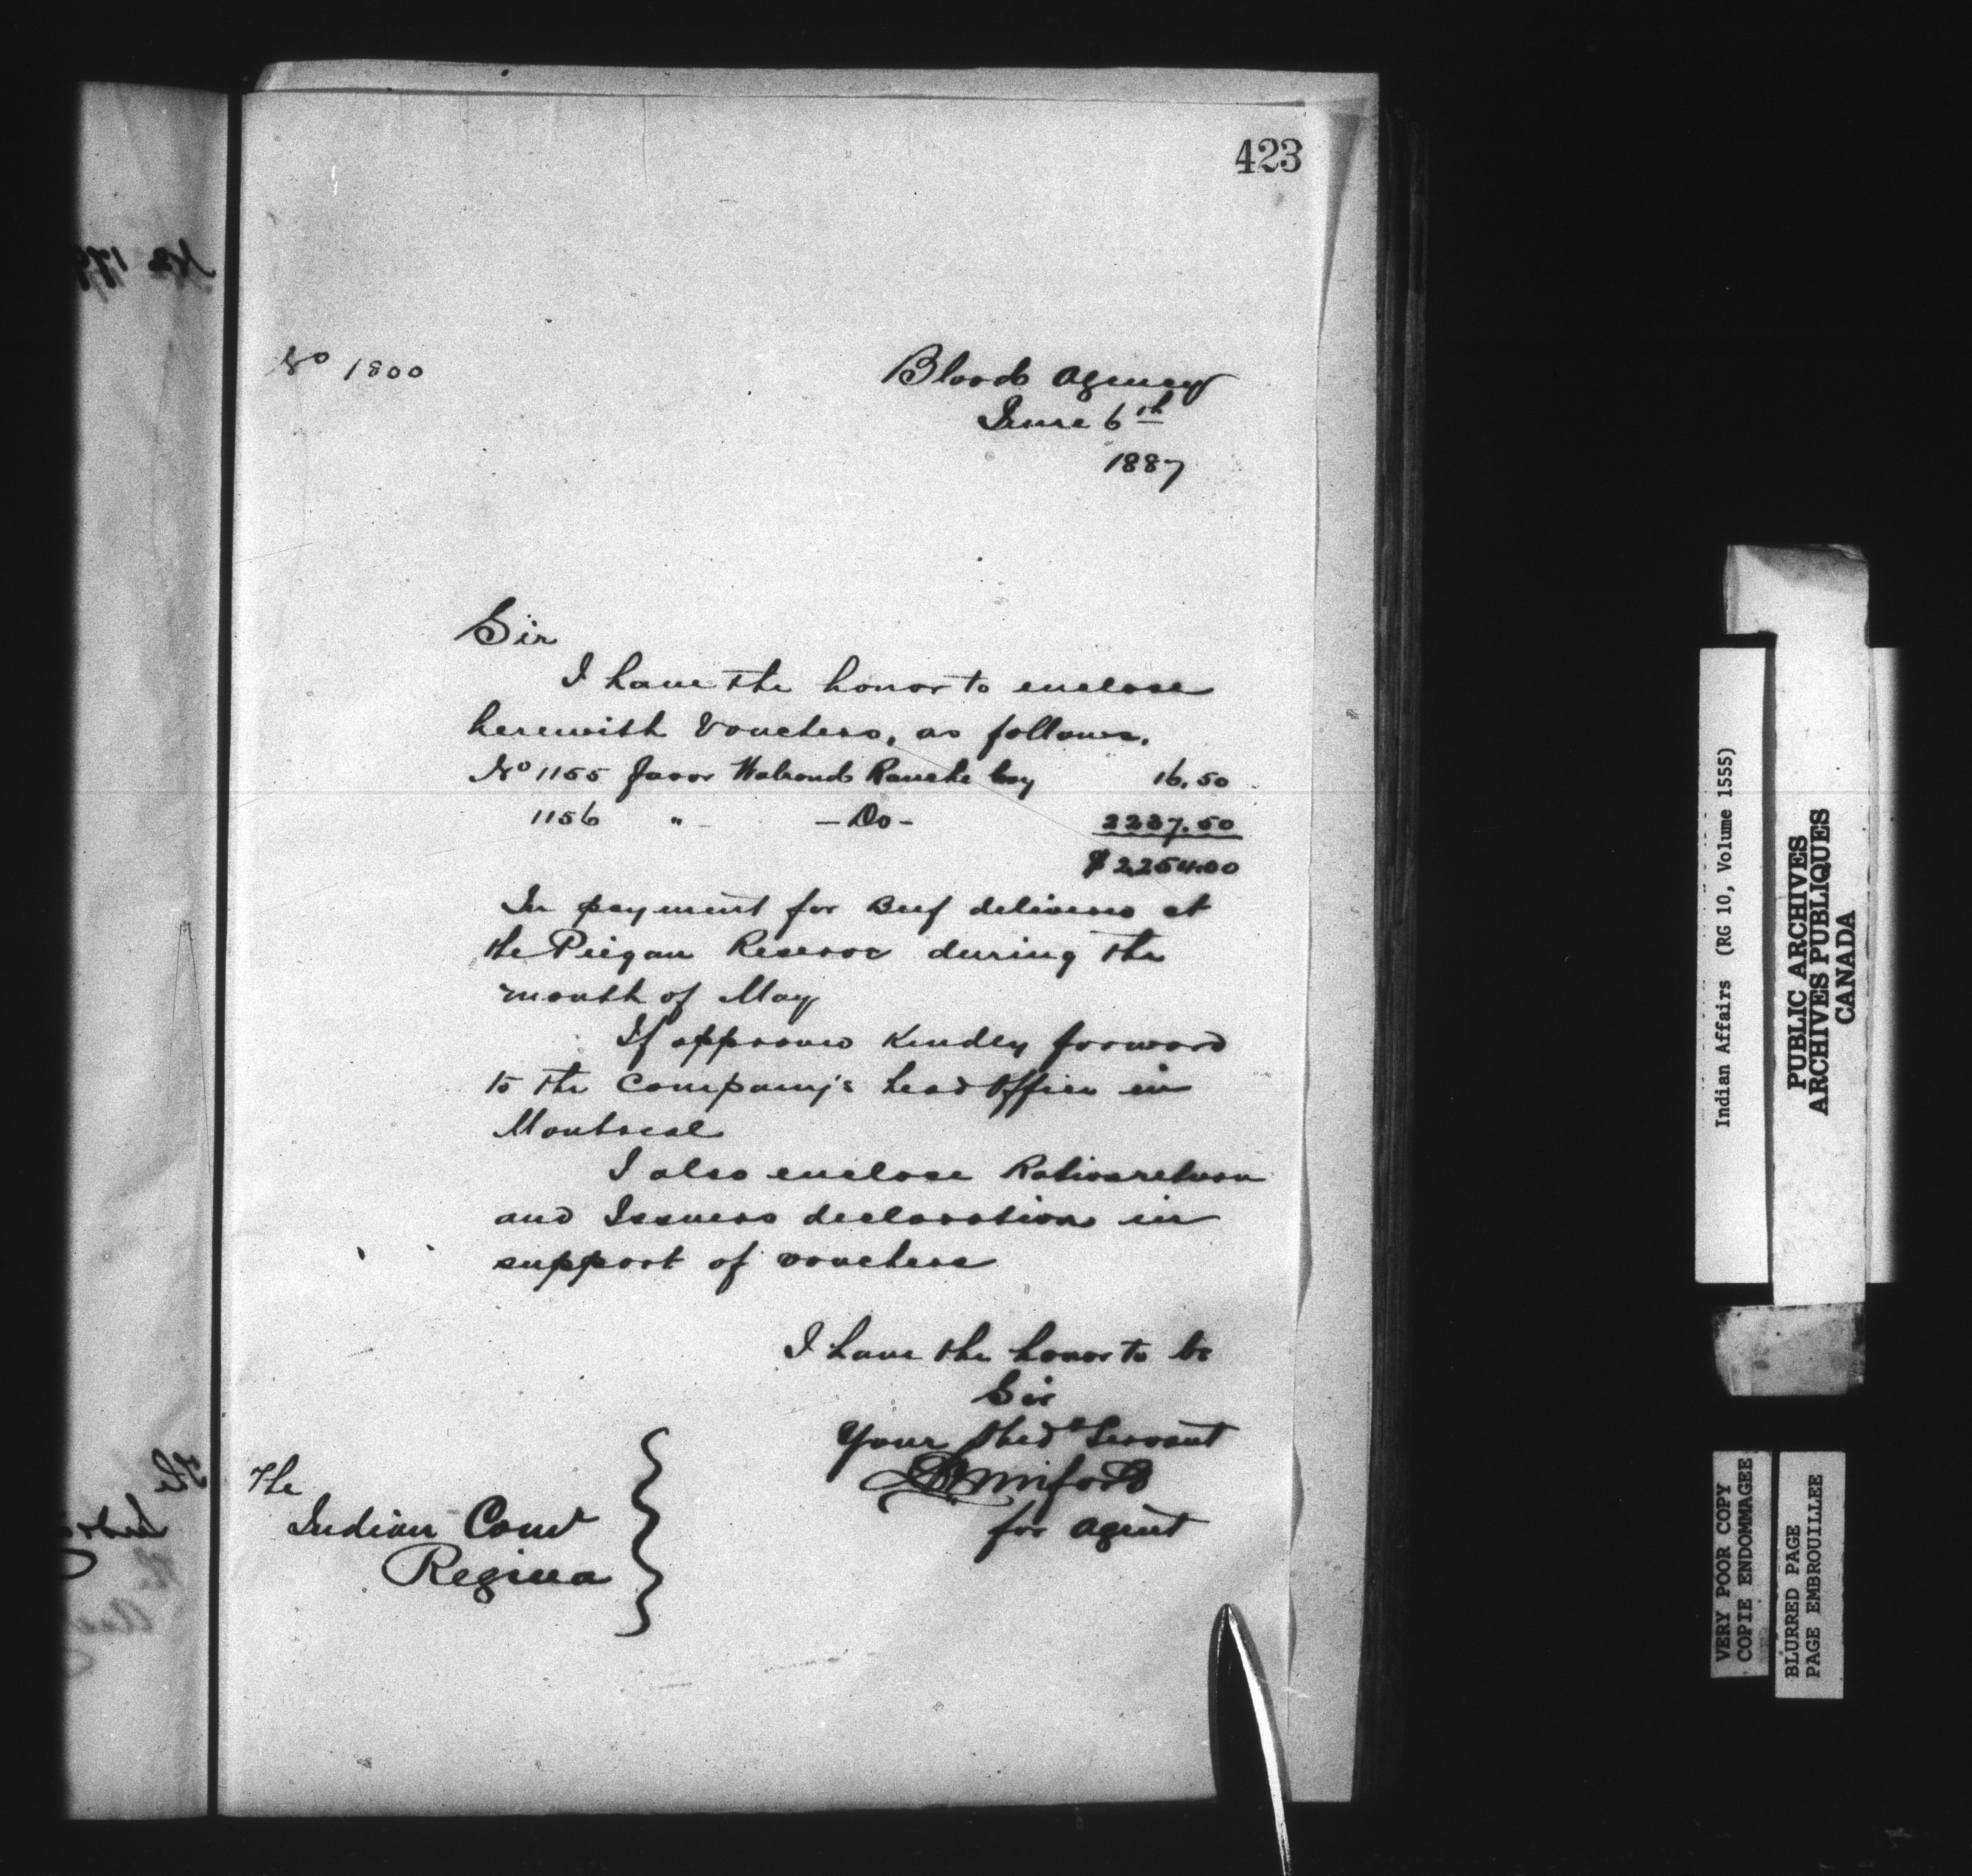 423
No 1800
Blood Agency
June 6th
1887
Sir
I have the honor to enclose
herewith Vouchers, as follows.
No 1155 favor Walrond Ranche Coy 16.50
1156 " - Do - 2237.50
$2254.00
In payment for Beef delivered at
the Piegan Reserve during the
month of May
If approved Kindly forward
to the Company's head Office in
Montreal
I also enclose Ration return
and Issuers declaration in
support of vouchers
I have the honor to be
Sir
Your Obedt Servant
for Agent
The
Indian Comr
Regina
Indian Affairs (RG 10, Volume 1555)
PUBLIC ARCHIVES
ARCHIVES PUBLIQUES
CANADA
VERY POOR COPY
COPIE ENDOMMAGEE
BLURRED PAGE
PAGE EMBROUILLEE